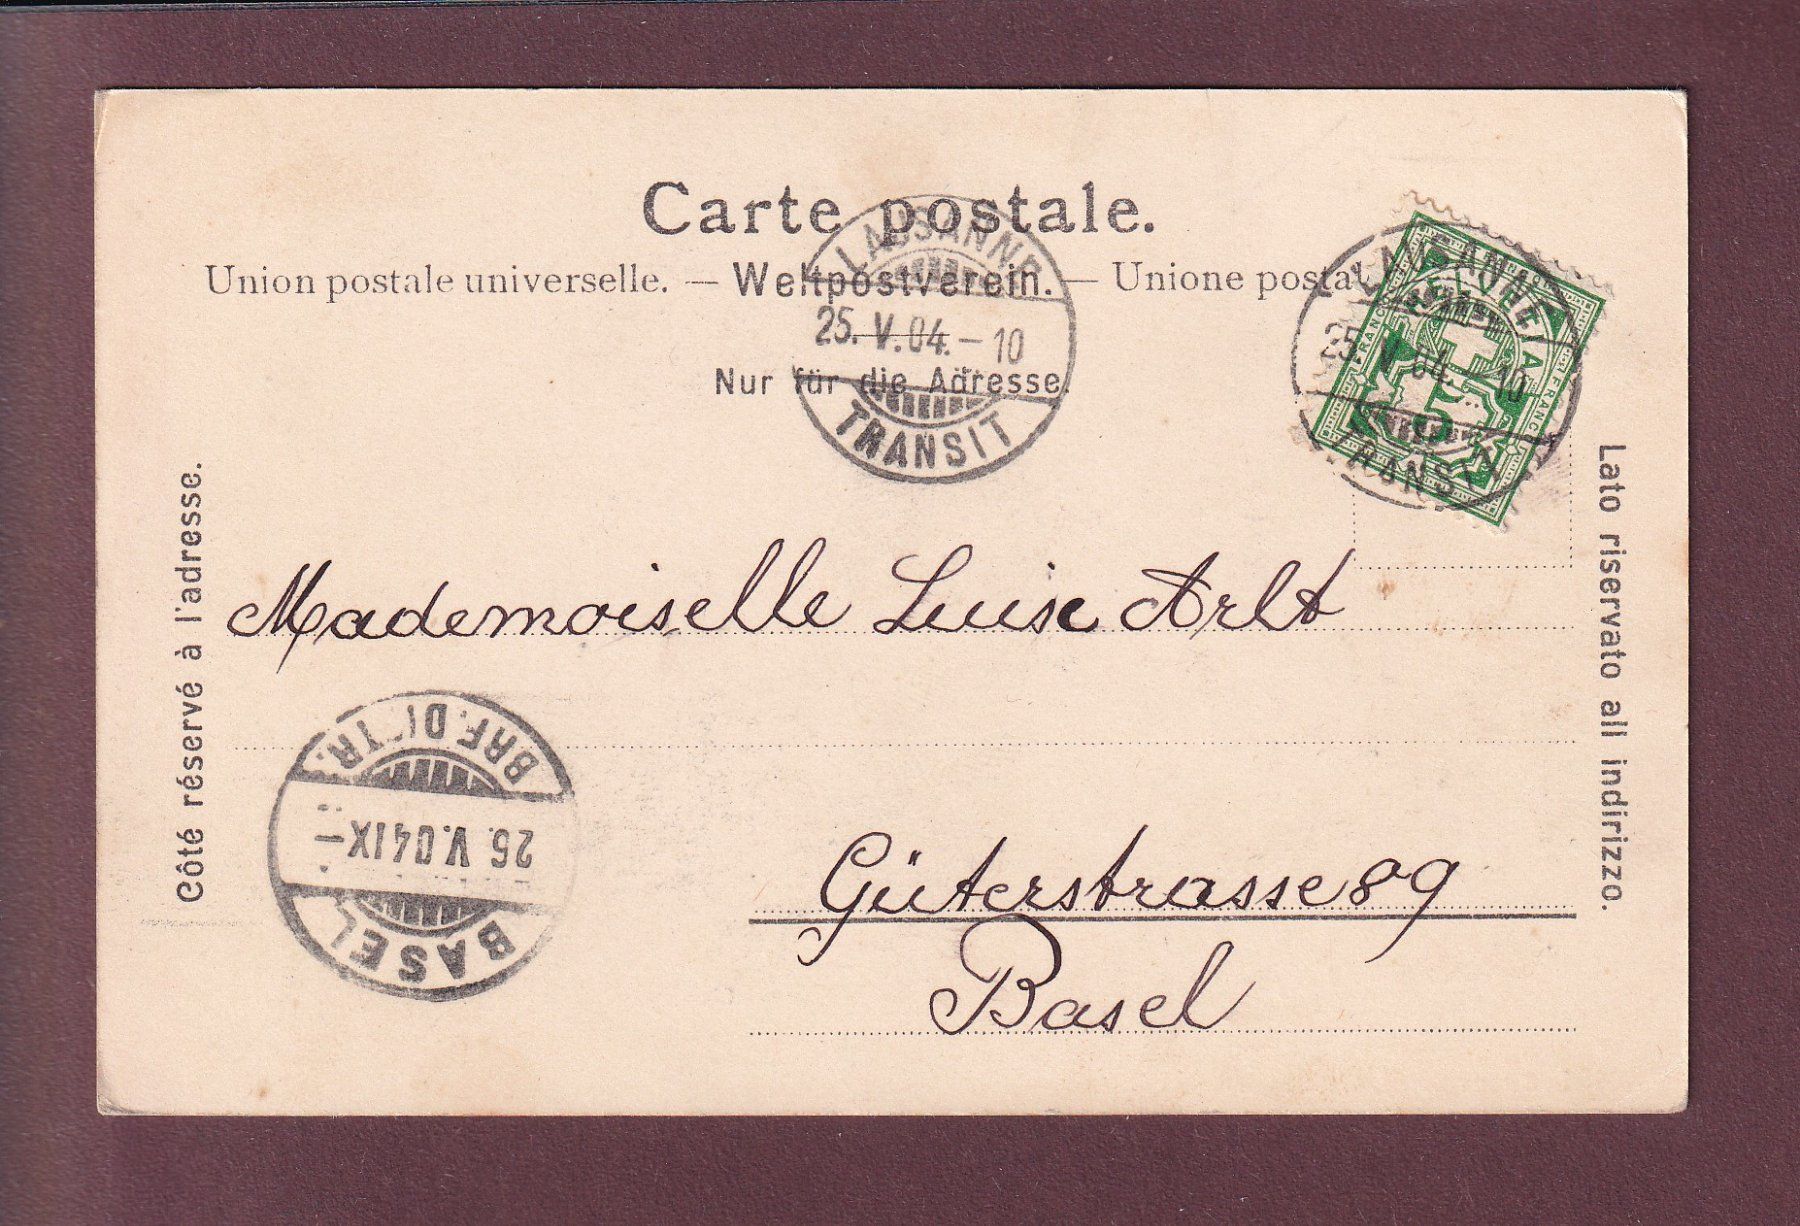 Carte postale.
Union postale universelle. — Weltpostverein. — Unione postal
Nur für die Adresse.
LAUSANNE
25. V. 04. – 10
TRANSIT
LAUSANNE
25. V. 04. – 10
TRANSIT
HELVETIA
FRANCO
FRANCO
5
Côté réservé à l'adresse.
Lato riservato all indirizzo.
Mademoiselle Luise Arlt
Güterstrasse 89
Basel
BASEL
26. V. 04 IX –
BRF. DISTR.